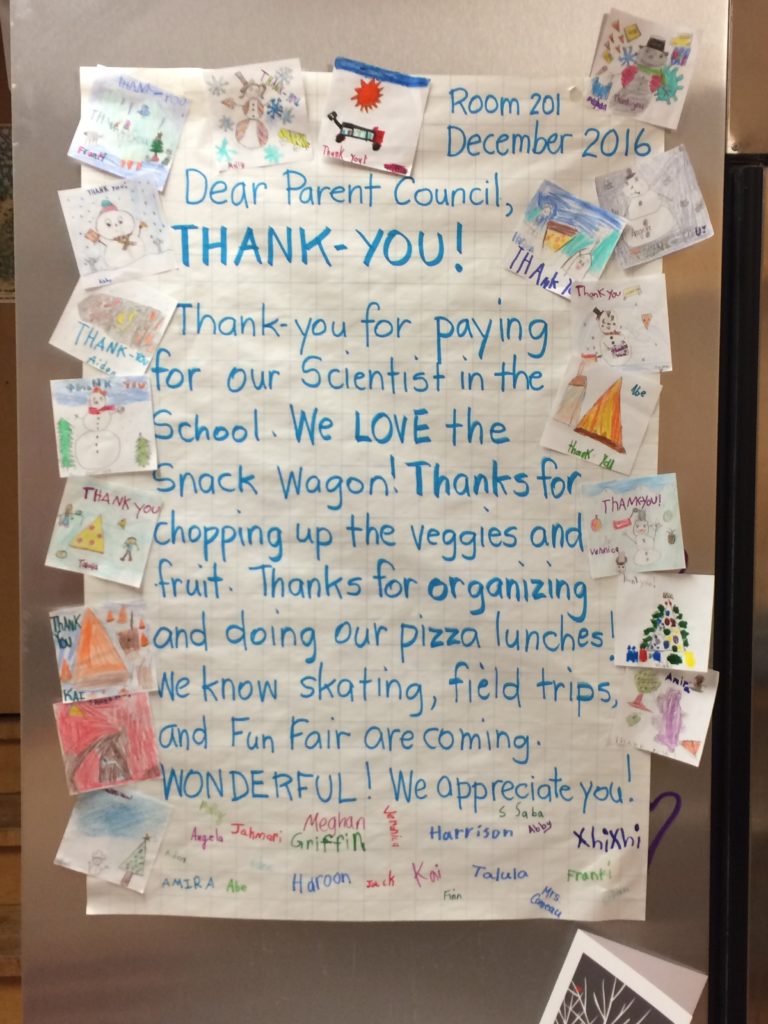 Room 201
December 2016
Dear Parent Council,
THANK-YOU!
Thank-you for paying
for our Scientist in the
School. We LOVE the
Snack Wagon! Thanks for
chopping up the veggies and
fruit. Thanks for organizing
and doing our pizza lunches!
We know skating, field trips,
and Fun Fair are coming.
WONDERFUL! We appreciate you!
Angela Jahmari Meghan Griffin Veronica Harrison S Saba Abby XhiXhi
AMIRA Abe Haroon Jack Kai Finn Talula Mrs Franti
THANK-YOU
Franti
THANK-YOU
Thank you!
Thank you
THANK YOU!
THANK-YOU
Aiden
THANK YOU
THANK YOU
Talula
THANK YOU
KAI
THANK
Thank You
Abe
thank You
THANKYOU!
Veronica
Thank you!
Amira